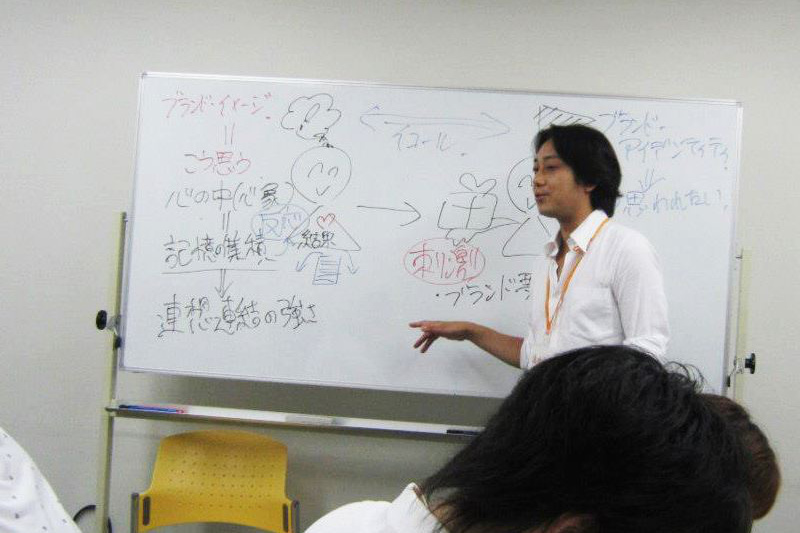 ブランド・イメージ.
=
こう思う
心の中(心象)
=
記憶の集積
↓
連想連結の強さ
反応
結果
イコール.
刺激
・ブランド
ブランド・
アイデンティティ
思われたい.